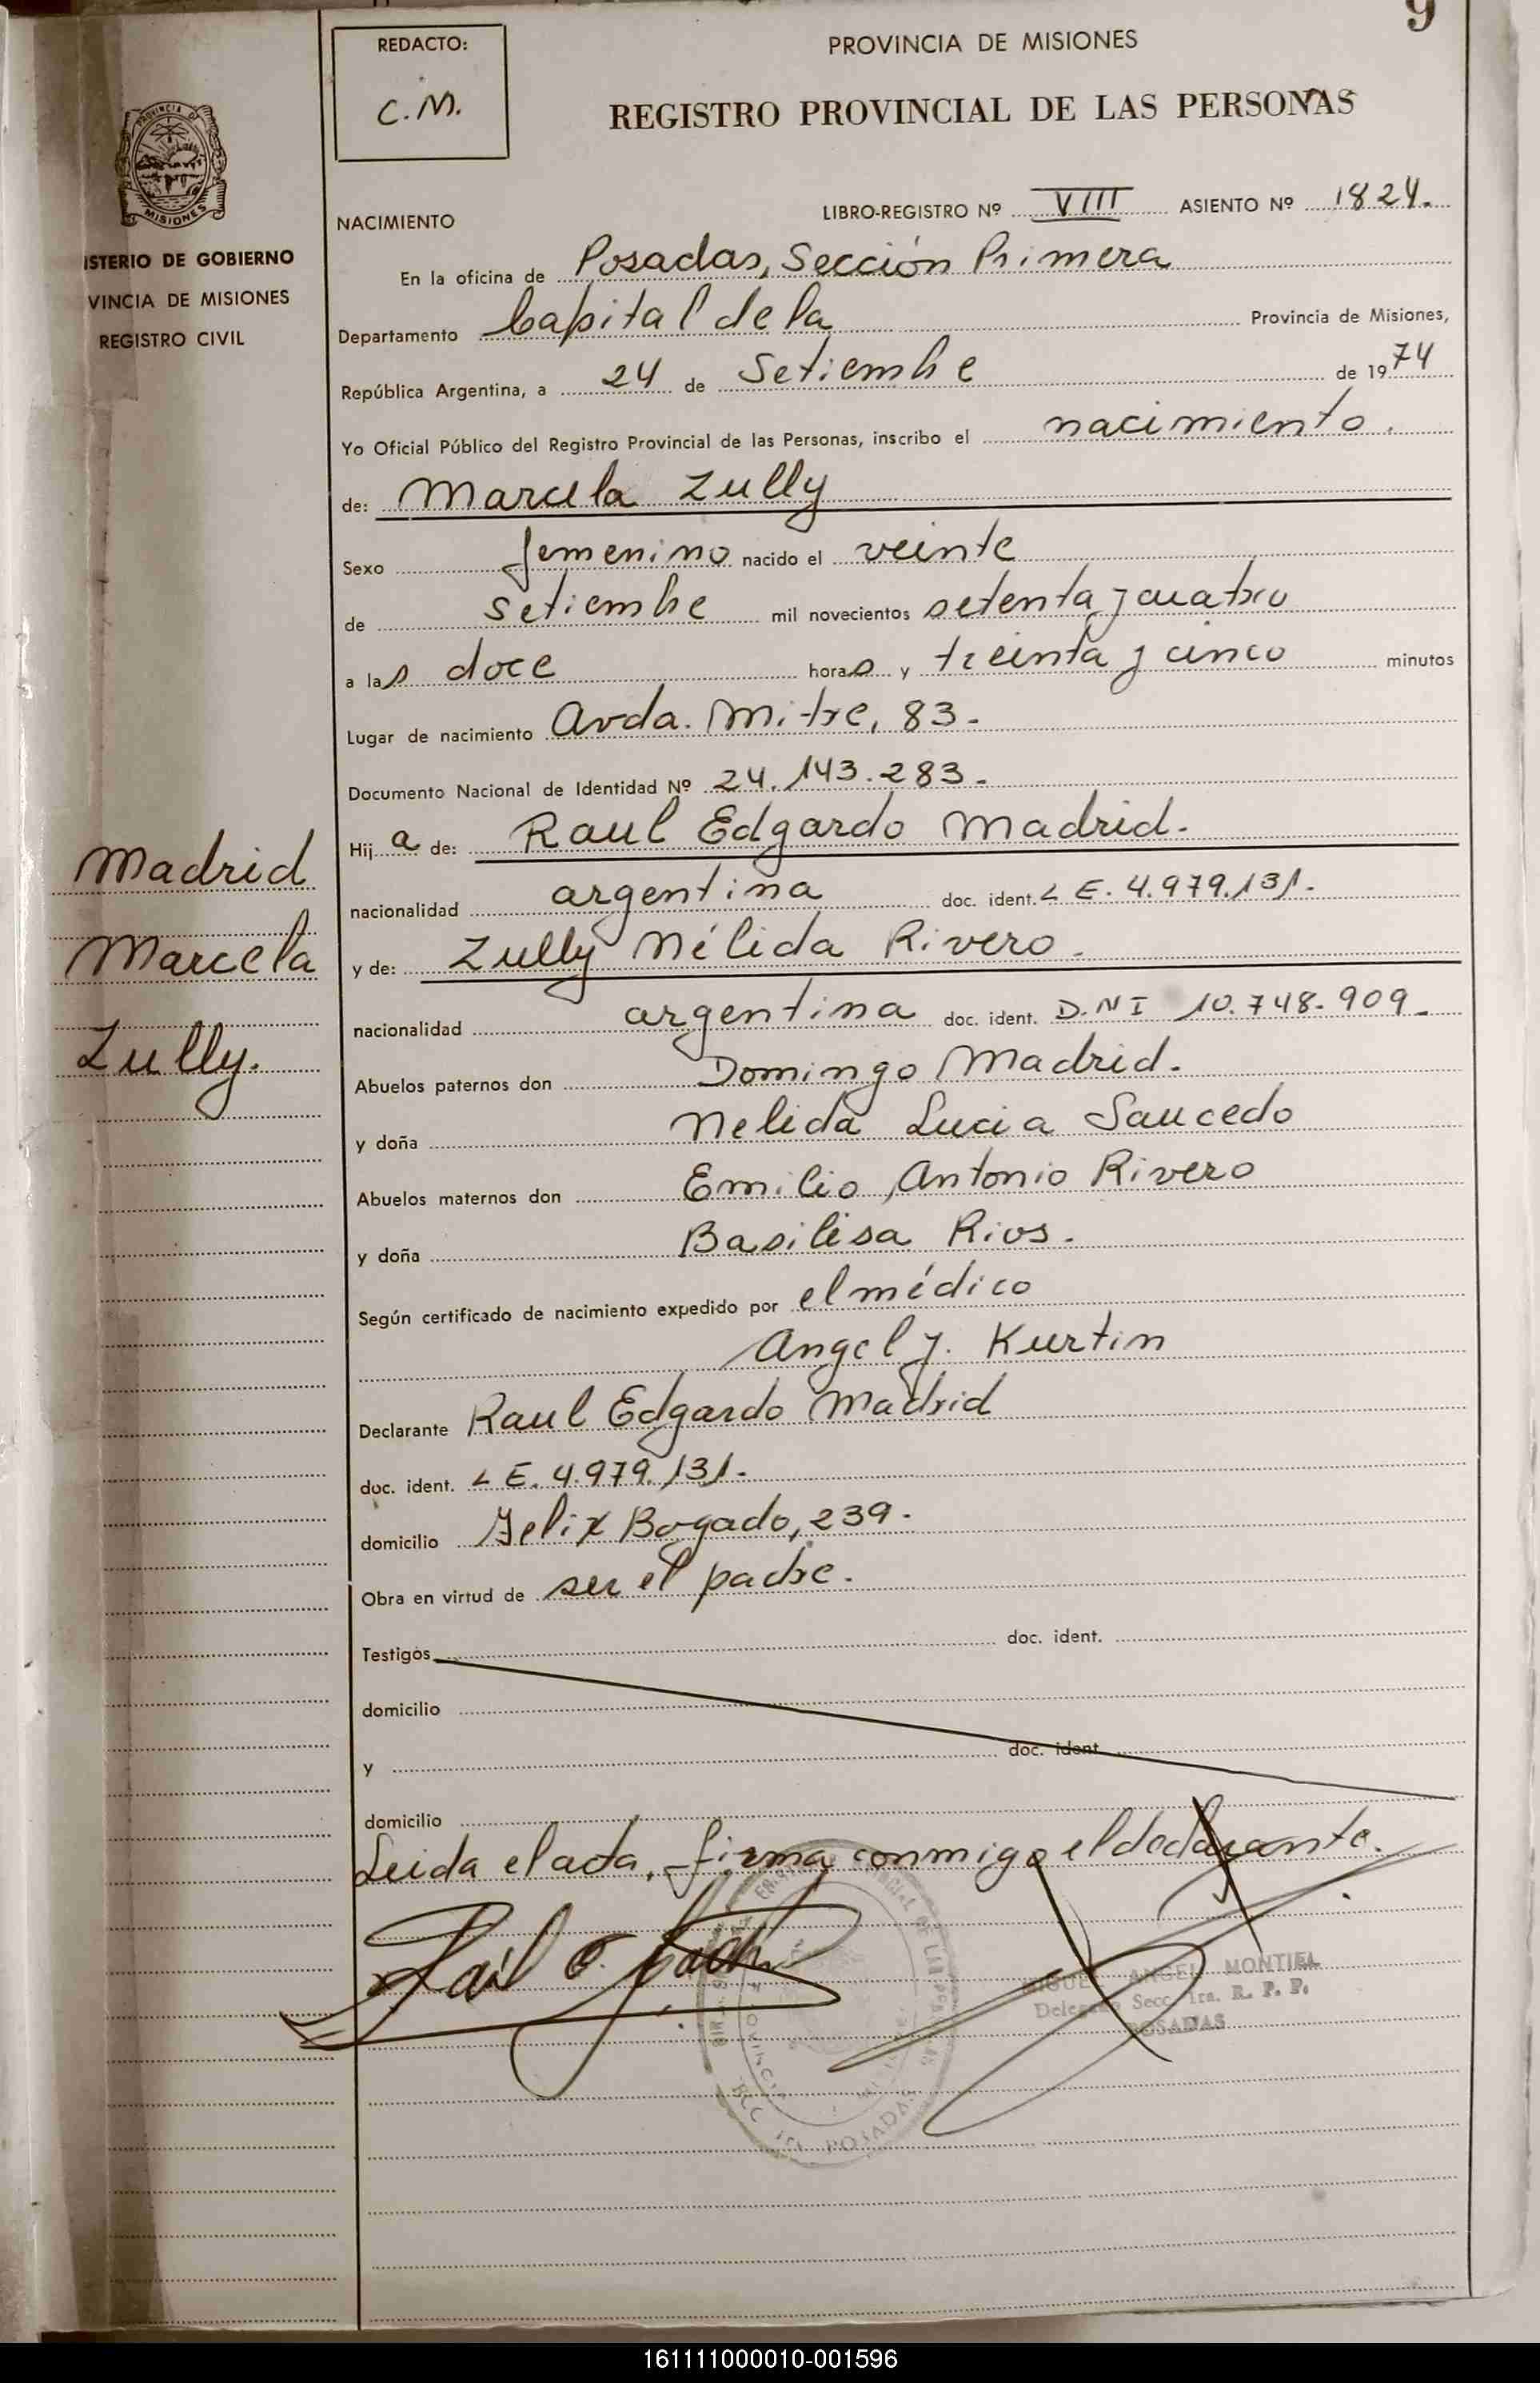 9
REDACTO:
C.M.
PROVINCIA DE MISIONES
REGISTRO PROVINCIAL DE LAS PERSONAS
PROVINCIA D
MISIONES
ISTERIO DE GOBIERNO
VINCIA DE MISIONES
REGISTRO CIVIL
NACIMIENTO
LIBRO-REGISTRO Nº VIII ASIENTO Nº 1824.
En la oficina de Posadas, Sección Primera
Departamento Capital de la Provincia de Misiones,
República Argentina, a 24 de Setiembre de 1974
Yo Oficial Público del Registro Provincial de las Personas, inscribo el nacimiento.
de: Marcela Zully
Sexo femenino nacido el veinte
de setiembre mil novecientos setenta y cuatro
a las doce horas y treinta y cinco minutos
Lugar de nacimiento Avda. Mitre, 83.
Documento Nacional de Identidad Nº 24.143.283.
Hij a de: Raul Edgardo Madrid.
nacionalidad argentina doc. ident. L E. 4.979.131.
y de: Zully Nélida Rivero.
nacionalidad argentina doc. ident. D.N I 10.748.909.
Abuelos paternos don Domingo Madrid.
y doña Nelida Lucia Saucedo
Abuelos maternos don Emilio Antonio Rivero
y doña Basilisa Rios.
Según certificado de nacimiento expedido por el médico
Angel J. Kurtin
Declarante Raul Edgardo Madrid
doc. ident. L E. 4.979.131.
domicilio Felix Bogado, 239.
Obra en virtud de ser el padre.
Testigos doc. ident.
domicilio
y doc. ident.
domicilio
Leida el acta, firma conmigo el declarante.
Madrid
Marcela
Zully.
MIGUEL ANGEL MONTIEL
Delegado Secc. 1ra. R. P. P.
POSADAS
161111000010-001596